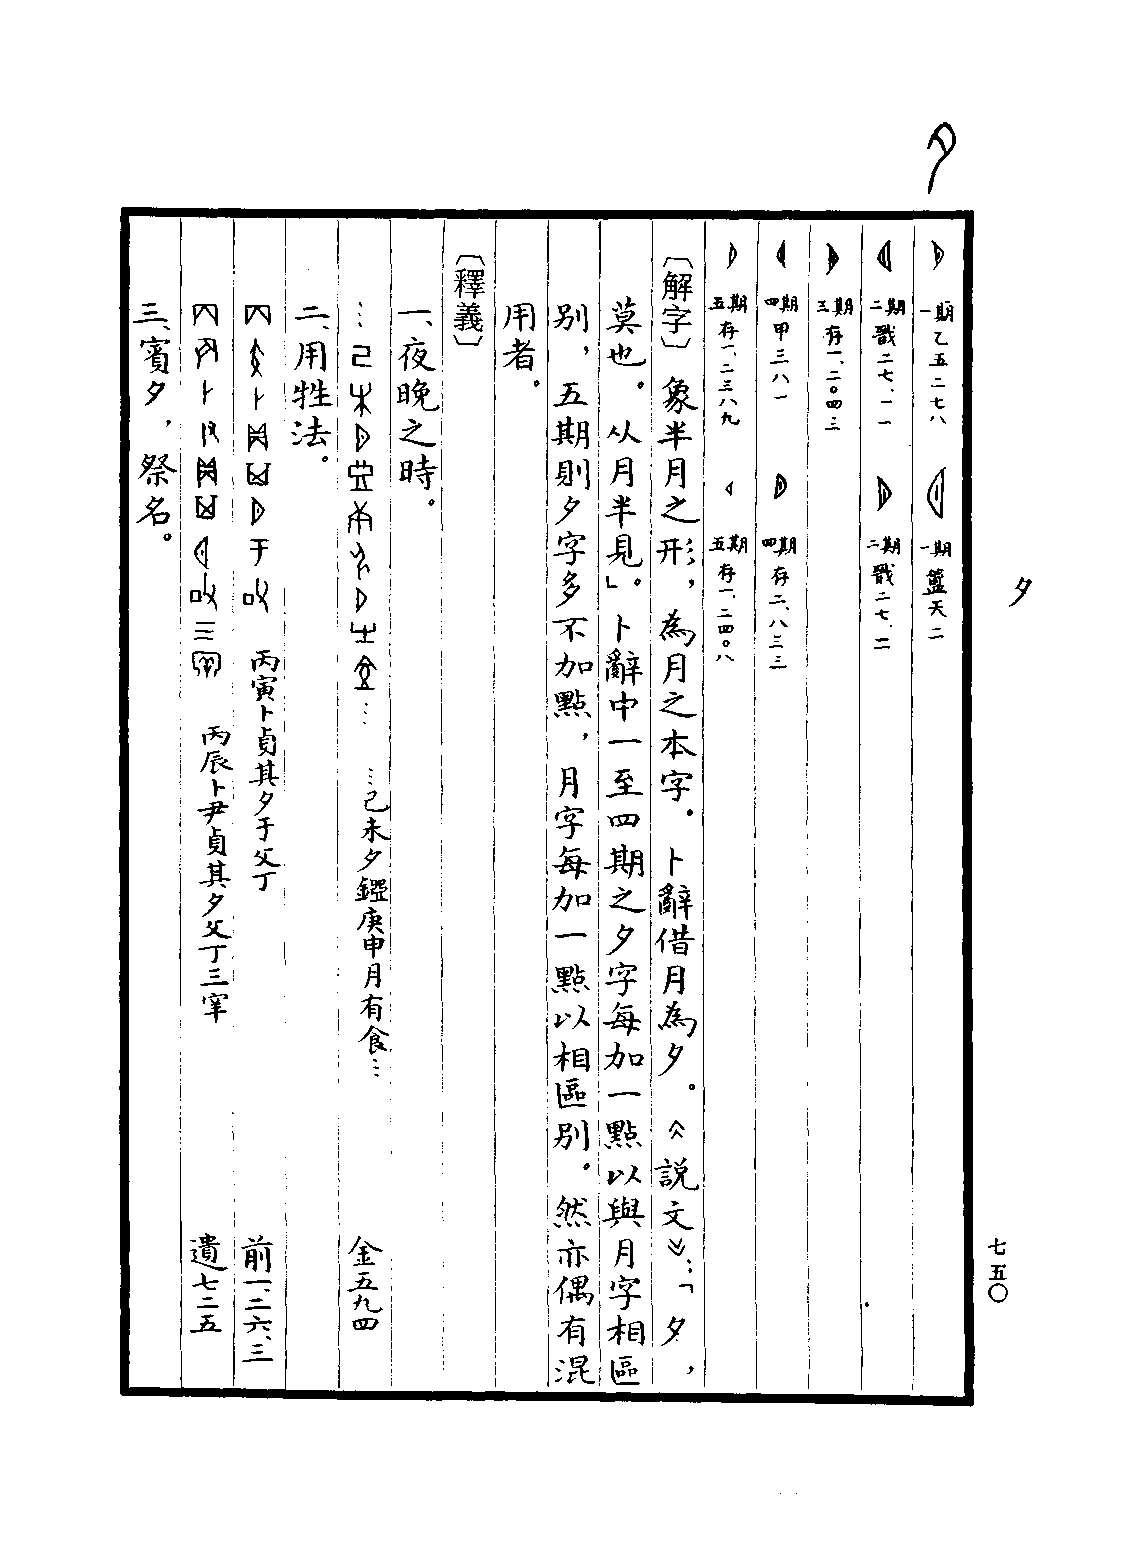 夕
一期乙五二七八
一期簠天二
二期戩二七、一一
二期戩二七、二
三期存一、二〇四三
四期甲三八一
四期存二、八三三
五期存一、二三八九
五期存一、二四〇八
〔解字〕象半月之形，為月之本字。卜辭借月為夕。《說文》：「夕，
莫也。从月半見」。卜辭中一至四期之夕字每加一點以與月字相區
別，五期則夕字多不加點，月字每加一點以相區別。然亦偶有混
用者。
〔釋義〕
一、夜晚之時。
…己未夕㿽庚申月有食… 金五九四
二、用牲法。
丙寅卜貞其夕于父丁 前一、二六、三
丙辰卜尹貞其夕父丁三宰 遺七二五
三、賓夕，祭名。
夕
七五〇